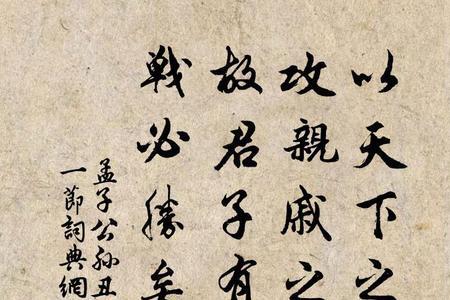 以天下之
攻親戚之
故君子有
戰必勝矣
孟子公孫丑
一節詞典網